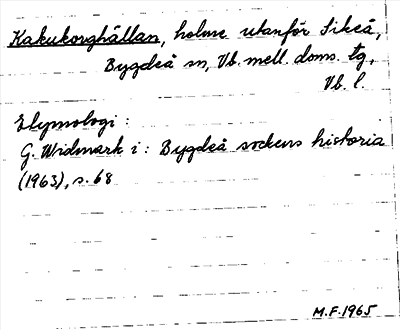 Kakukorghällan, holme utanför Sikeå,
Bygdeå sn, Vb. mell. doms. tg,
Vb. l.
Etymologi:
G. Widmark i: Bygdeå sockens historia
(1963), s. 68
M.F. 1965